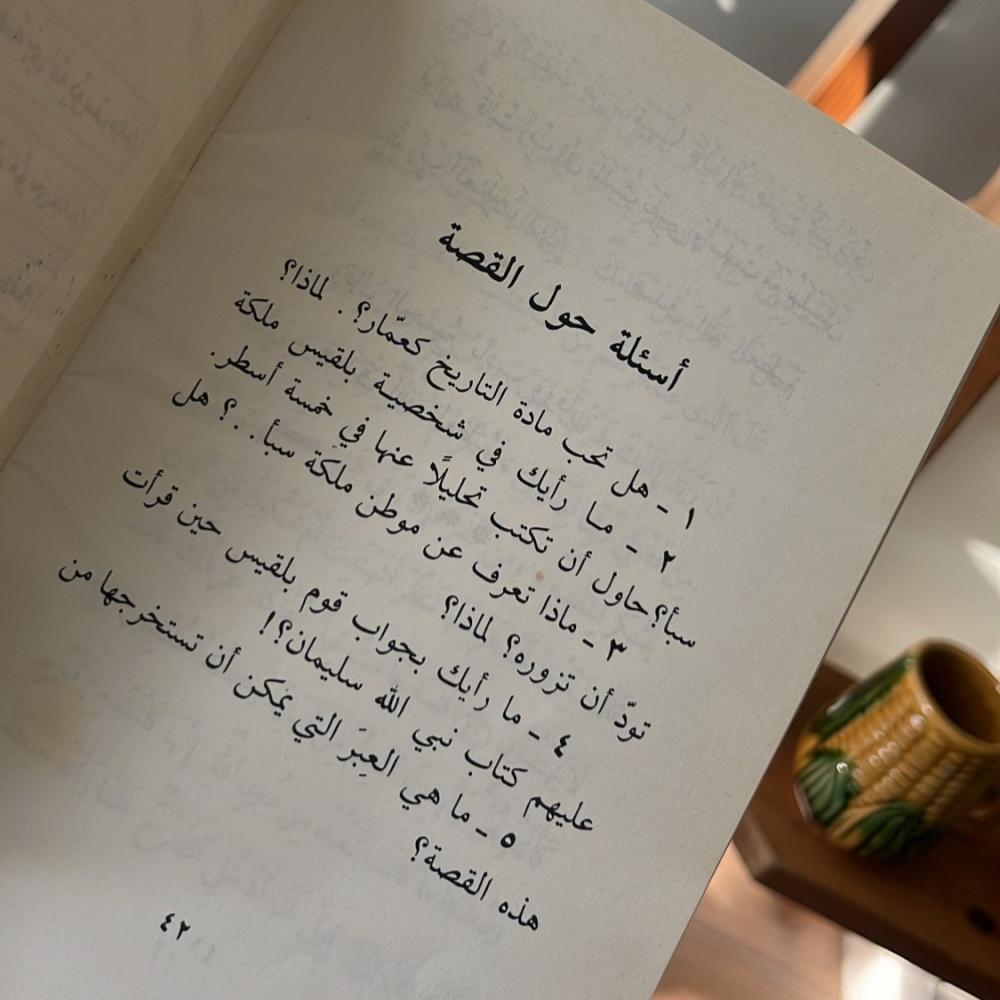 أسئلة حول القصة
١ - هل تحب مادة التاريخ كعمّار؟. لماذا؟
٢ - ما رأيك في شخصية بلقيس ملكة
سبأ؟ حاول أن تكتب تحليلًا عنها في خمسة أسطر.
٣ - ماذا تعرف عن موطن ملكة سبأ..؟ هل
تودّ أن تزوره؟ لماذا؟
٤ - ما رأيك بجواب قوم بلقيس حين قرأت
عليهم كتاب نبي الله سليمان؟!
٥ - ما هي العِبَر التي يمكن أن تستخرجها من
هذه القصة؟
٤٢